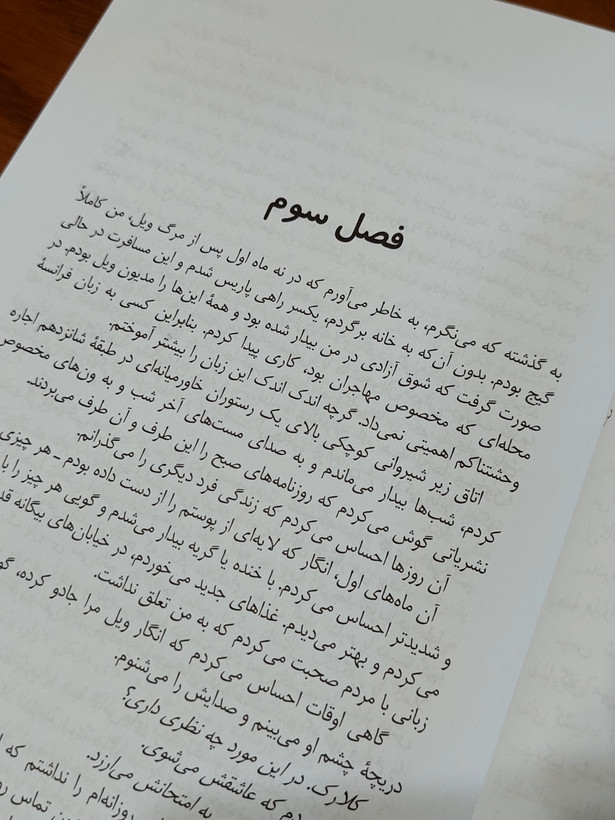 فصل سوم
به گذشته که می‌نگرم، به خاطر می‌آورم که در نه ماه اول پس از مرگ ویل، من کاملاً
گیج بودم. بدون آن که به خانه برگردم، یکسر راهی پاریس شدم و این مسافرت در حالی
صورت گرفت که شوق آزادی در من بیدار شده بود و همهٔ این‌ها را مدیون ویل بودم. در
محله‌ای که مخصوص مهاجران بود، کاری پیدا کردم. بنابراین کسی به زبان فرانسهٔ
وحشتناکم اهمیتی نمی‌داد. گرچه اندک اندک این زبان را بیشتر آموختم.
اتاق زیر شیروانی کوچکی بالای یک رستوران خاورمیانه‌ای در طبقهٔ شانزدهم اجاره
کردم، شب‌ها بیدار می‌ماندم و به صدای مست‌های آخر شب و به ون‌های مخصوص
نشریاتی گوش می‌کردم که روزنامه‌های صبح را این طرف و آن طرف می‌بردند.
آن روزها احساس می‌کردم که زندگی فرد دیگری را می‌گذرانم.
آن ماه‌های اول، انگار که لایه‌ای از پوستم را از دست داده بودم ـ هر چیزی
و شدیدتر احساس می‌کردم. با خنده یا گریه بیدار می‌شدم و گویی هر چیز را با
می‌کردم و بهتر می‌دیدم. غذاهای جدید می‌خوردم، در خیابان‌های بیگانه
زبانی با مردم صحبت می‌کردم که به من تعلق نداشت.
گاهی اوقات احساس می‌کردم که انگار ویل مرا جادو کرده،
دریچهٔ چشم او می‌بینم و صدایش را می‌شنوم.
کلارک. در این مورد چه نظری داری؟
که عاشقش می‌شوی.
به امتحانش می‌ارزد.
را نداشتم که
تماس